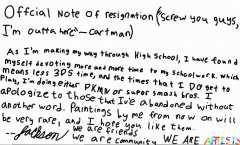 Offcial Note of resignation ("Screw you guys,
I'm outta here" —Cartman)
As I'm making my way through High School, I have found
myself devoting more and more time to my schoolwork. which
means less 3DS time, and the times that I DO get to
Play, I'm doing either PKMN or super smash bros. I
apologize to those that I've abandoned without
another word. Paintings by me from now on will
be very rare, and I hope you like them.
--Jackson
we are friends
we are community WE ARE ARTISTS